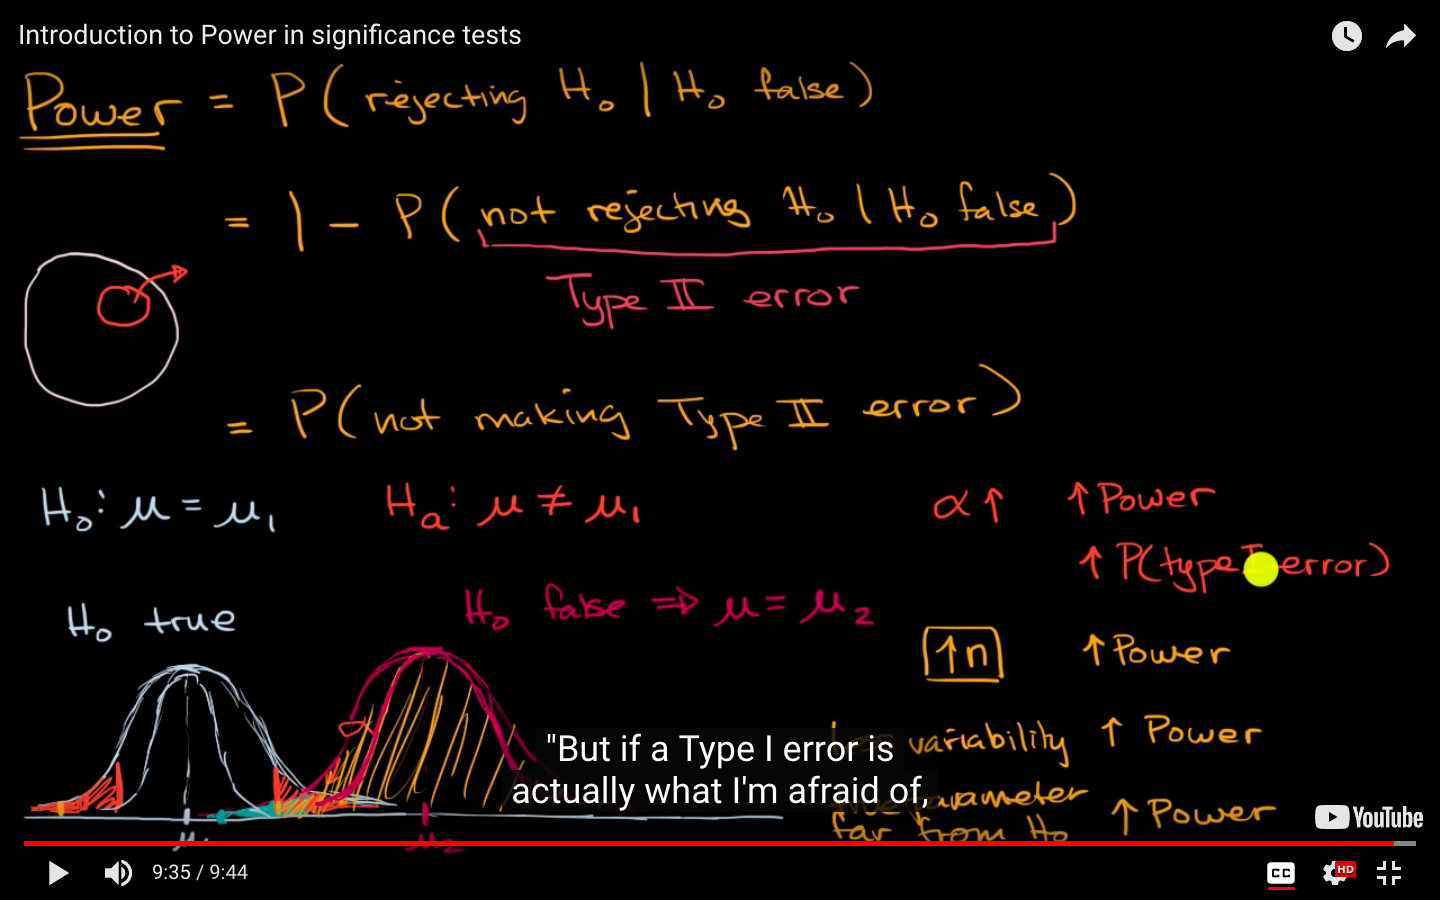 Introduction to Power in significance tests
Power = P(rejecting H₀ | H₀ false)
= 1 - P(not rejecting H₀ | H₀ false)
Type II error
= P(not making Type II error)
H₀: μ = μ₁
Hₐ: μ ≠ μ₁
α↑ ↑Power
↑ P(type I error)
H₀ true
H₀ false ⇒ μ = μ₂
↑n ↑Power
α
variability ↑ Power
parameter
far from H₀ ↑ Power
μ₂
"But if a Type I error is
actually what I'm afraid of,
YouTube
9:35 / 9:44
CC
HD